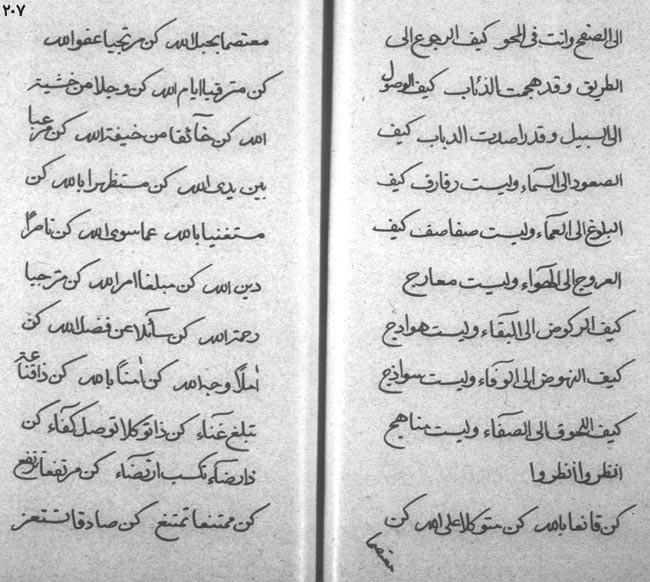 ٢٠٧
الی الصفح وانت فی المحو کیف الرجوع الی
الطریق وقد هجمت الذئاب کیف الوصول
الی السبیل وقد راصدت الدباب کیف
الصعود الی السماء ولیست رفارف کیف
البلاغ الی العماء ولیست صفاصف کیف
العروج الی الهواء ولیست معارج
کیف الرکوض الی البقاء ولیست هوادج
کیف النهوض الی الوفاء ولیست سواذج
کیف اللحوق الی الصفاء ولیست مناهج
انظروا انظروا
کن قانعا بالله کن متوکلا علی الله کن
معتصما
معتصما بحبل الله کن مرتجیا عفو الله
کن مترقبا ایام الله کن وجلا من خشیة
الله کن خآئفا من خیفة الله کن مرعبا
بین یدی الله کن مستظهرا بالله کن
مستغنیا بالله عما سوی الله کن ناصرا
دین الله کن مبلغا امر الله کن مترجیا
رحمة الله کن سآئلا عن فضل الله کن
املاً وجه الله کن اٰمناً بالله کن ذا قناعة
تبلغ غنآء کن ذا توکلا توصل کفآء کن
ذا رضآء تکسب ارتضآء کن مرتفعا ترتفع
کن ممتنعا تمتنع کن صادقا تستعز